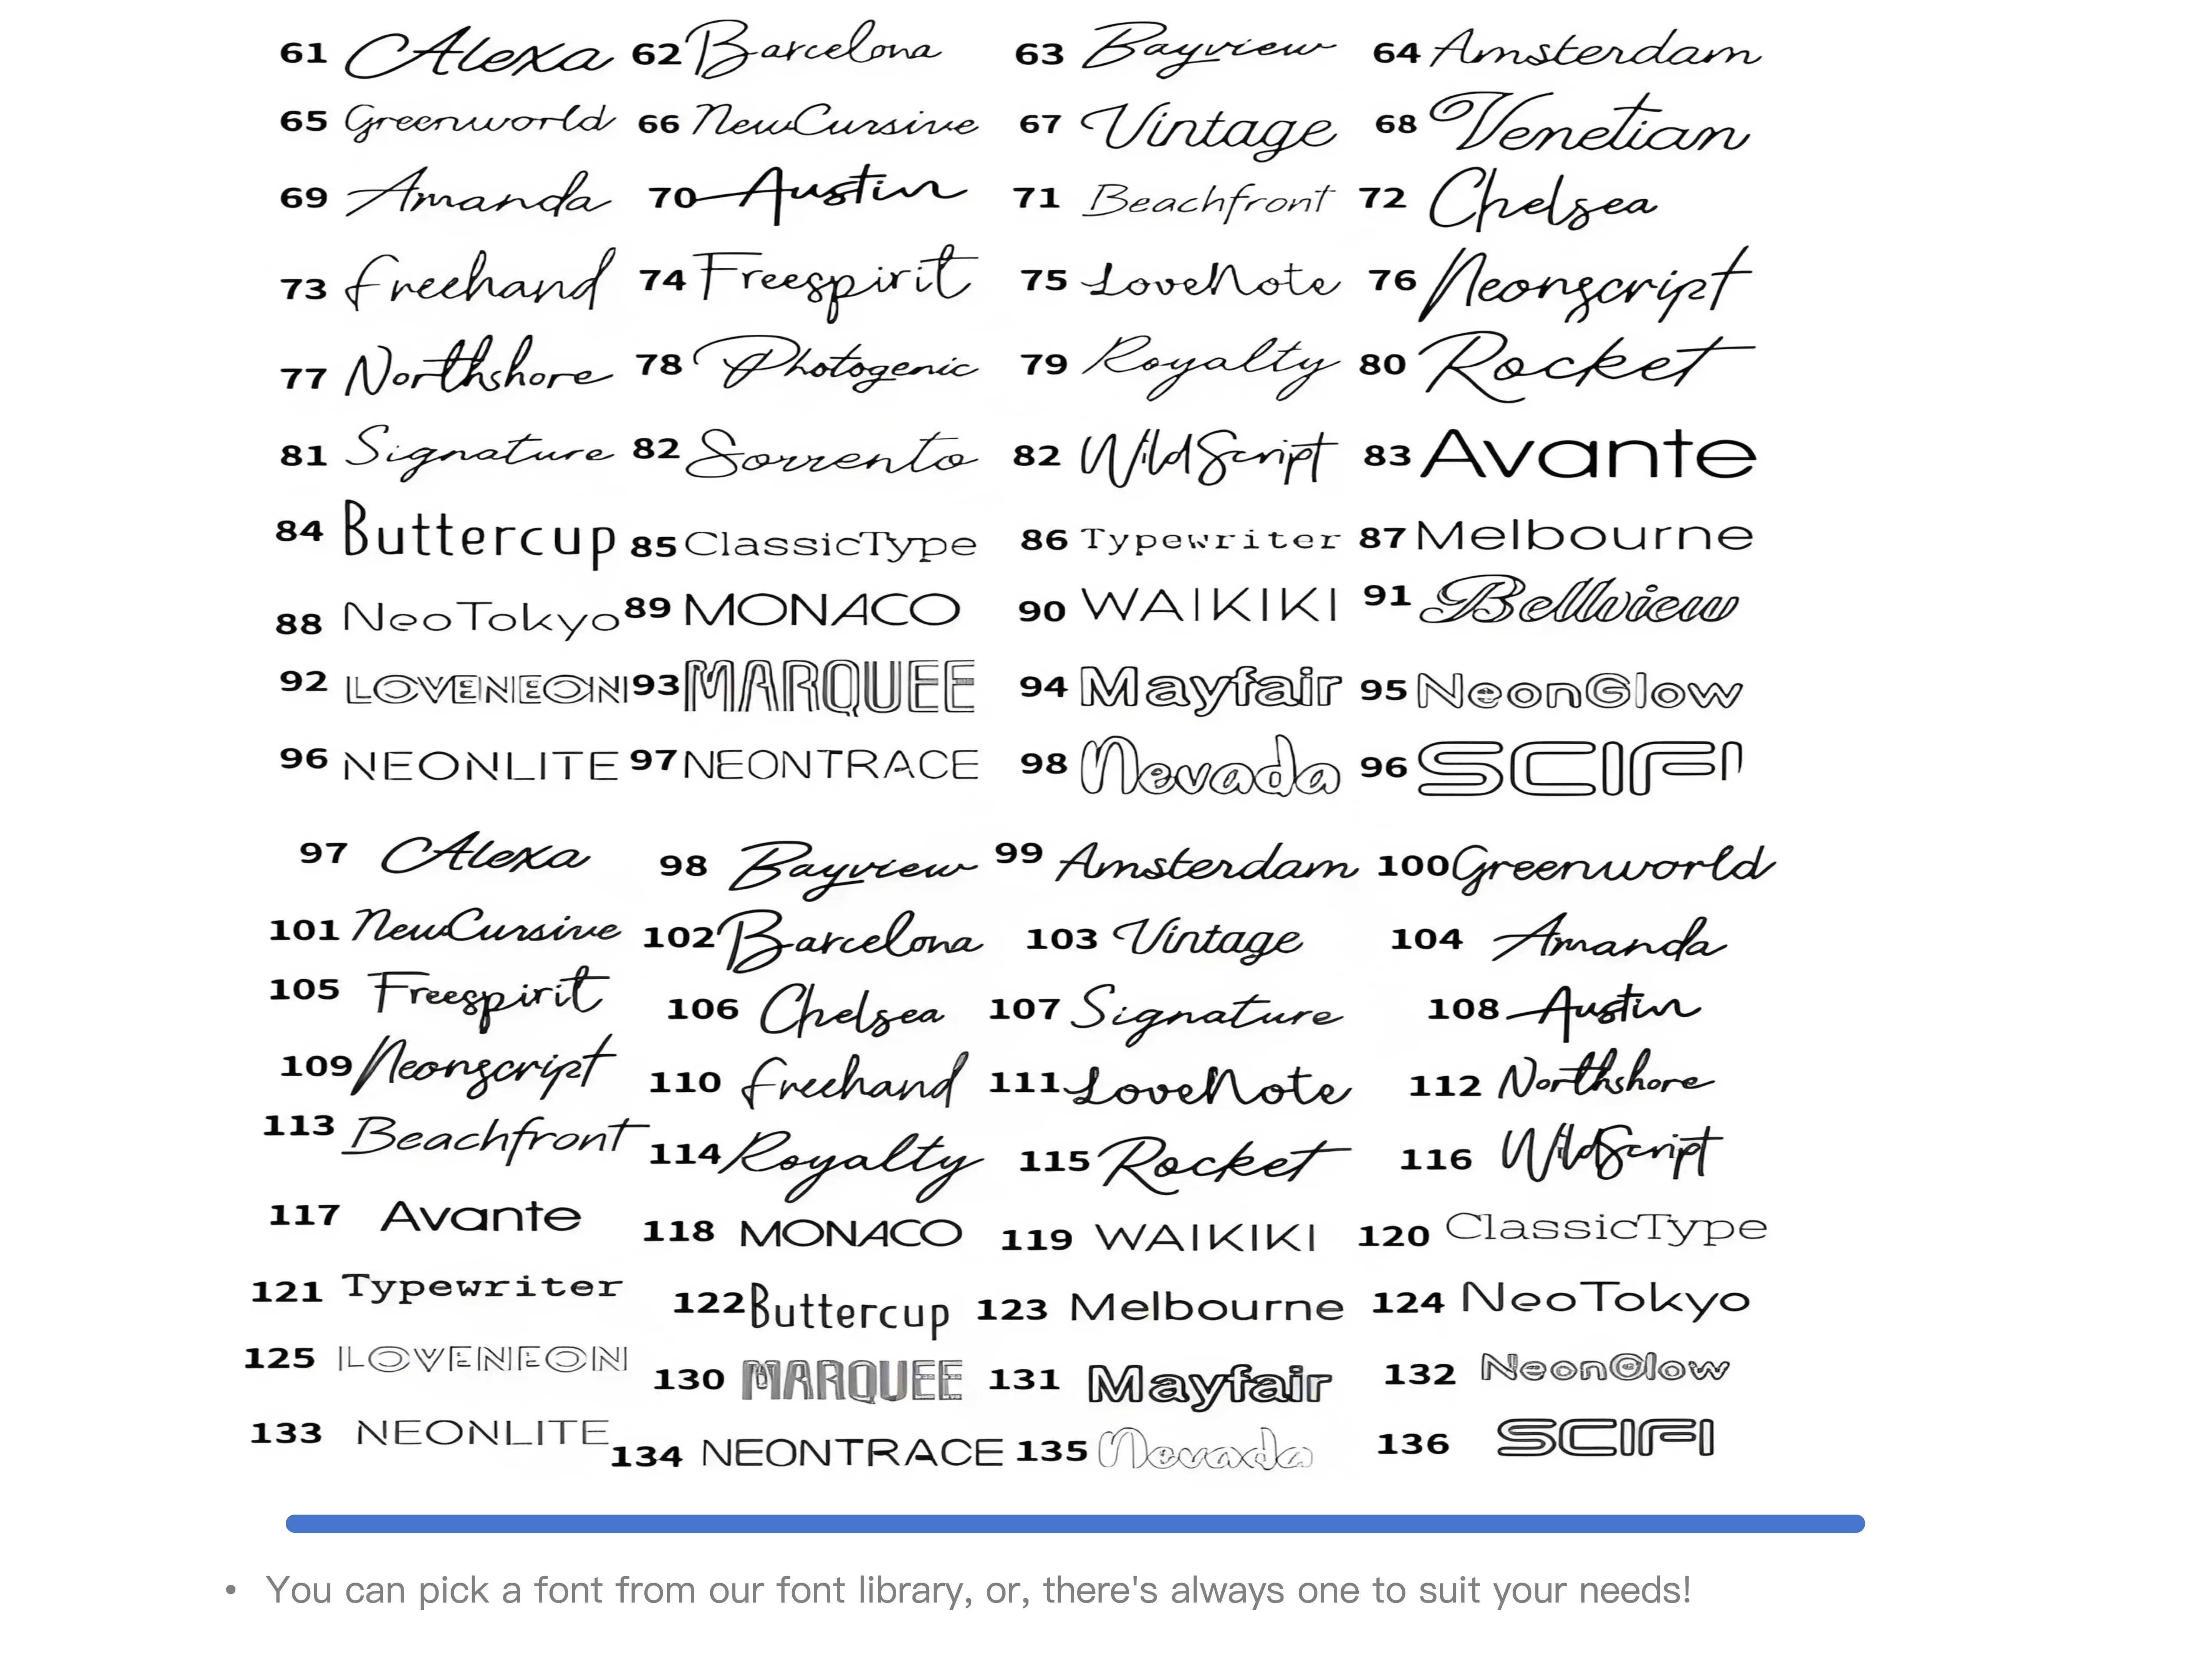 61 Alexa 62 Barcelona 63 Bayview 64 Amsterdam
65 Greenworld 66 NewCursive 67 Vintage 68 Venetian
69 Amanda 70 Austin 71 Beachfront 72 Chelsea
73 freehand 74 Freespirit 75 LoveNote 76 Neonscript
77 Northshore 78 Photogenic 79 Royalty 80 Rocket
81 Signature 82 Sorrento 82 WildScript 83 Avante
84 Buttercup 85 ClassicType 86 Typewriter 87 Melbourne
88 NeoTokyo 89 MONACO 90 WAIKIKI 91 Bellview
92 LOVENEON 93 MARQUEE 94 Mayfair 95 NeonGlow
96 NEONLITE 97 NEONTRACE 98 Nevada 96 SCIFI
97 Alexa 98 Bayview 99 Amsterdam 100 Greenworld
101 NewCursive 102 Barcelona 103 Vintage 104 Amanda
105 Freespirit 106 Chelsea 107 Signature 108 Austin
109 Neonscript 110 freehand 111 LoveNote 112 Northshore
113 Beachfront 114 Royalty 115 Rocket 116 WildScript
117 Avante 118 MONACO 119 WAIKIKI 120 ClassicType
121 Typewriter 122 Buttercup 123 Melbourne 124 NeoTokyo
125 LOVENEON 130 MARQUEE 131 Mayfair 132 NeonGlow
133 NEONLITE 134 NEONTRACE 135 Nevada 136 SCIFI
• You can pick a font from our font library, or, there's always one to suit your needs!